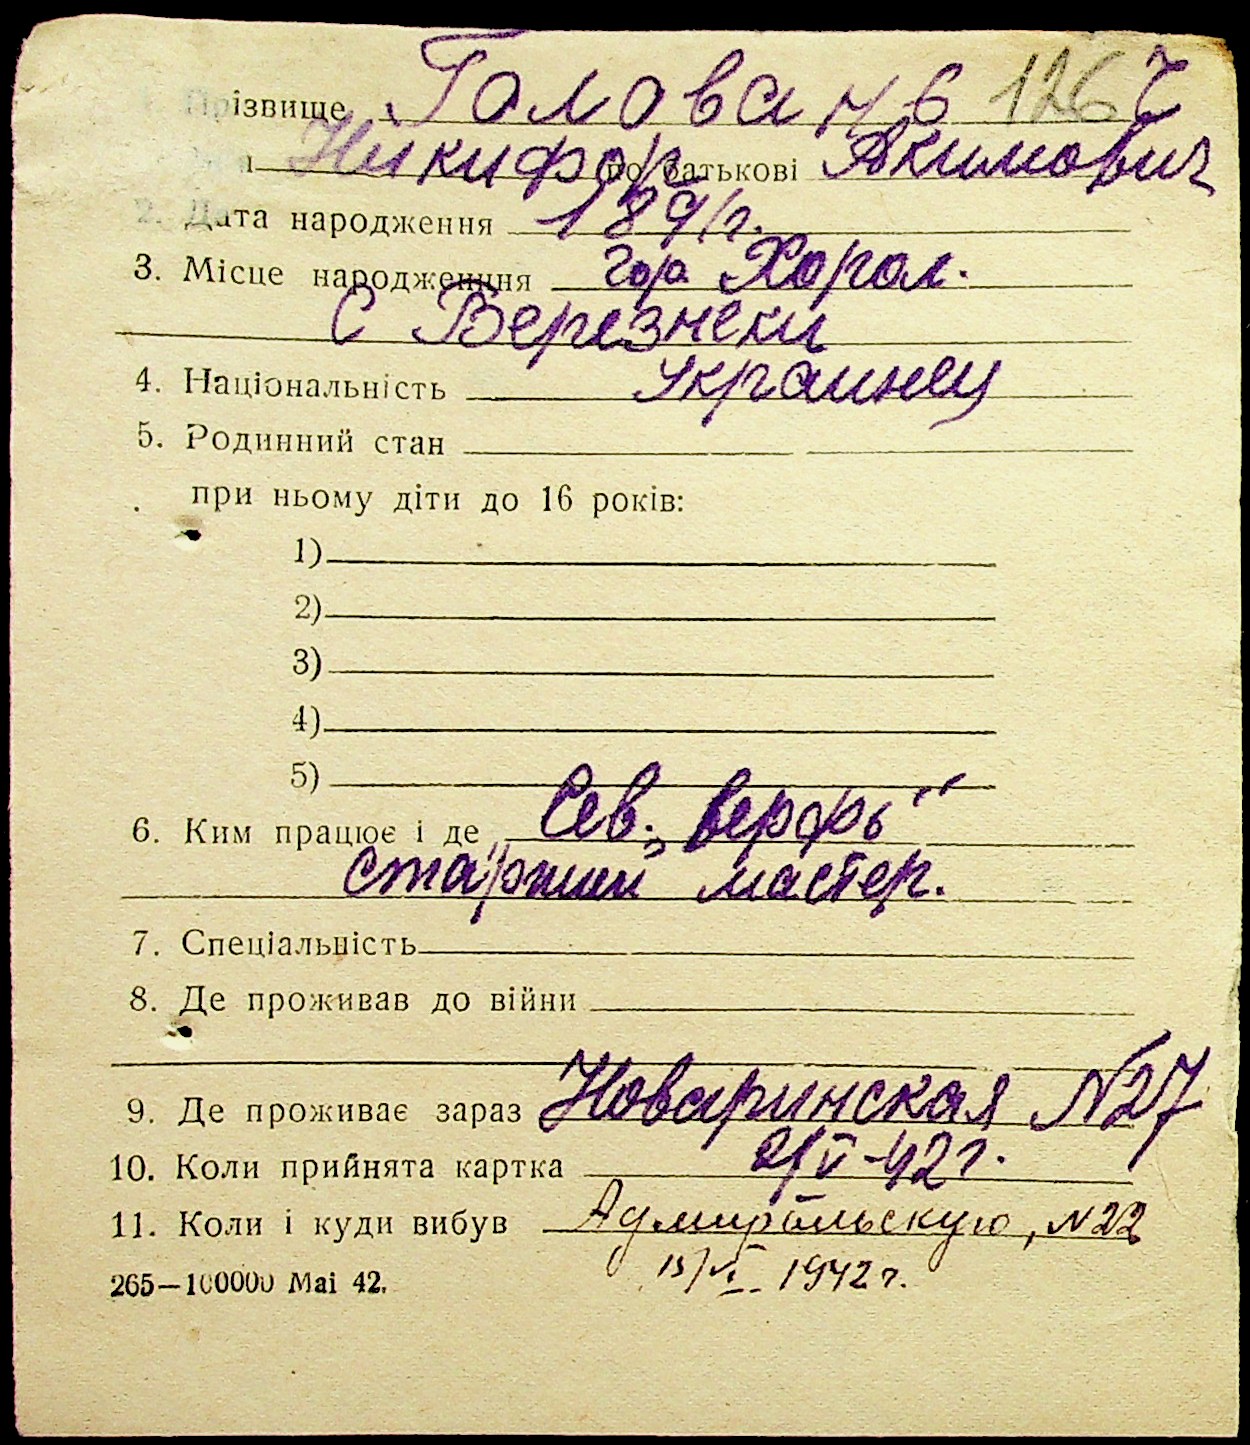 Прізвище Голованов 126 г
Никифор по батькові Якимович
2. Дата народження 1891 г.
3. Місце народження гор Хорол.
С Верезнеки
4. Національність украинец
5. Родинний стан
при ньому діти до 16 років:
1)
2)
3)
4)
5)
6. Ким працює і де Сев. „верфь"
старший мастер.
7. Спеціальність
8. Де проживав до війни
9. Де проживає зараз Новаринская N27
10. Коли прийнята картка V-42 г.
11. Коли і куди вибув Адмиральскую, N 22
265—100000 Mai 42. 13/VI 1942 г.